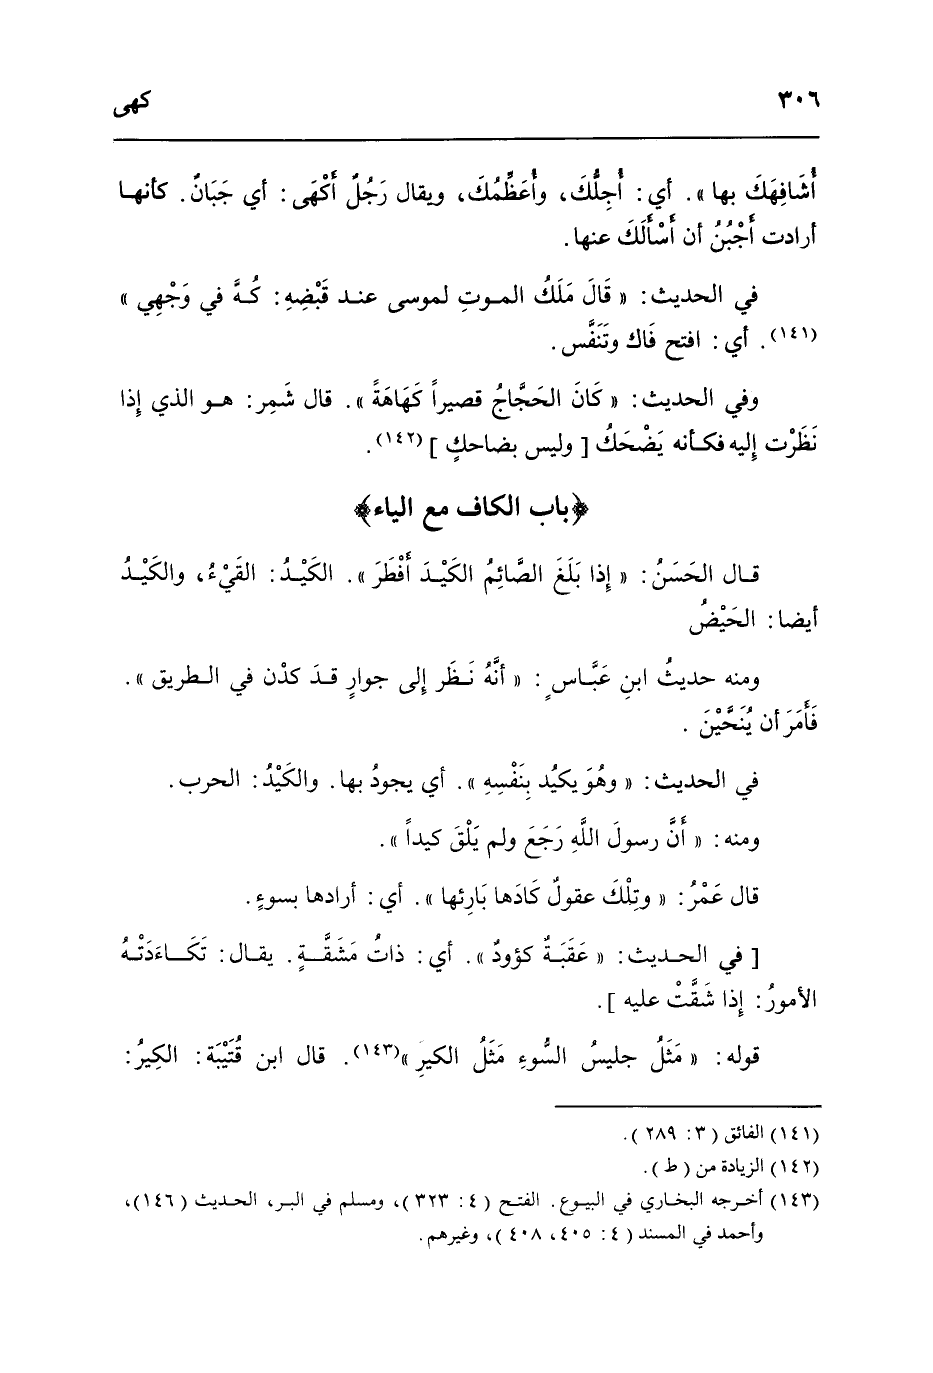 ٣٠٦ كهى
أُشَافِهَكَ بها ». أي: أُجِلُّكَ، وأُعَظِّمُكَ، ويقال رَجُلٌ أَكْهَى: أي جَبَانٌ. كأنها
أرادت أَجْبُنُ أن أَسْأَلَكَ عنها.
في الحديث: « قَالَ مَلَكُ الموتِ لموسى عند قَبْضِهِ: كُهَّ في وَجْهِي »
(١٤١). أي: افتح فَاك وتَنَفَّس.
وفي الحديث: « كَانَ الحَجَّاجُ قصيراً كَهَاهَةً ». قال شَمِر: هو الذي إذا
نَظَرْت إليه فكأنه يَضْحَكُ [ وليس بضاحكٍ ] (١٤٢).
﴿باب الكاف مع الياء﴾
قال الحَسَنُ: « إذا بَلَغَ الصَّائِمُ الكَيْدَ أَفْطَرَ ». الكَيْدُ: القَيْءُ، والكَيْدُ
أيضا: الحَيْضُ
ومنه حديثُ ابنِ عَبَّاسٍ: « أنَّهُ نَظَر إلى جوارٍ قدَ كدْن في الطريق ».
فَأَمَرَ أن يُنَحَّيْنَ .
في الحديث: « وهُوَ يكيُد بِنَفْسِهِ ». أي يجودُ بها. والكَيْدُ: الحرب.
ومنه: « أَنَّ رسولَ اللَّهِ رَجَعَ ولم يَلْقَ كيداً ».
قال عَمْرُ: « وتِلْكَ عقولٌ كَادَها بَارِئها ». أي: أرادها بسوءٍ.
[ في الحديث: « عَقَبَةٌ كؤودٌ ». أي: ذاتُ مَشَقَّةٍ. يقال: تَكَاءَدَتْهُ
الأمورُ: إذا شَقَّتْ عليه ].
قوله: « مَثَلُ جليسُ السُّوءِ مَثَلُ الكيرِ »(١٤٣). قال ابن قُتَيْبَة: الكِيرُ:
(١٤١) الفائق (٣: ٢٨٩ ).
(١٤٢) الزيادة من ( ط ).
(١٤٣) أخرجه البخاري في البيوع. الفتح ( ٤: ٣٢٣ )، ومسلم في البر، الحديث ( ١٤٦)،
وأحمد في المسند ( ٤: ٤٠٥، ٤٠٨ )، وغيرهم.